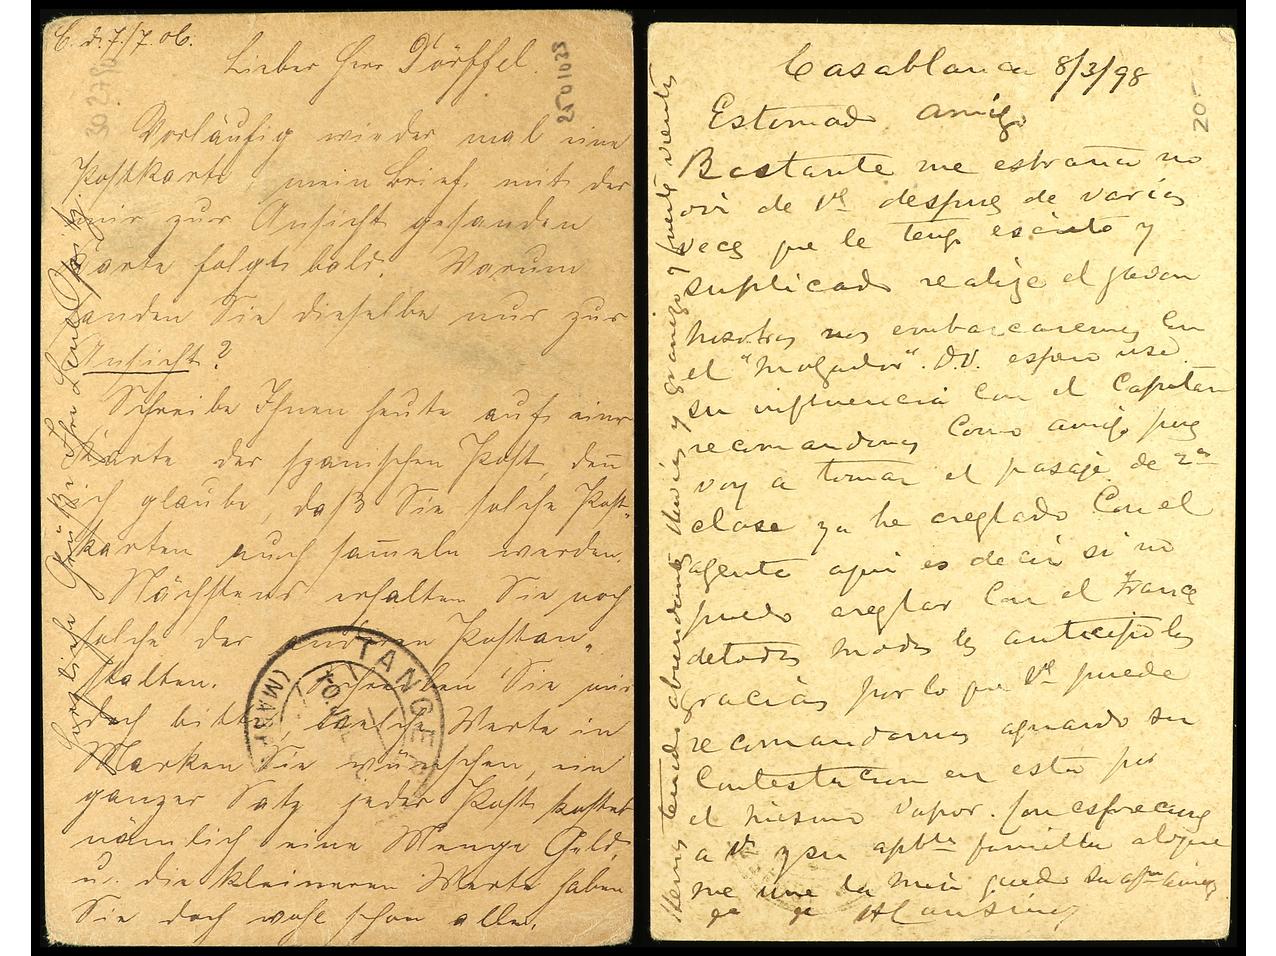 C. d. 7./7. 06.
Lieber Herr Dörffel.
Vorläufig wieder mal eine
Postkarte, mein Brief mit der
mir zur Ansicht gesandten
Karte folgt bald. Warum
sandten Sie dieselbe nur zur
Ansicht?
Schreibe Ihnen heute auf einer
Karte der spanischen Post, denn
ich glaube, daß Sie solche Post-
karten auch sammeln werden.
Nächstens erhalten Sie noch
solche der anderen Postan-
stalten. Schreiben Sie mir
doch bitte, welche Werte in
Marken Sie wünschen, ein
ganzer Satz jeder Post kostet
nämlich eine Menge Geld,
u. die kleineren Werte haben
Sie doch wohl schon alle.
Herzliche Grüße Ihr
TANGER
(MARR
2501033
Casablanca 8/3/98
Estimado amigo
Bastante me estraña no
oir de Vd despues de varias
veces que le tengo escrito y
suplicado realize el
nosotros nos embarcaremos en
el "Mogador". D.V. espero use
su influencia con el Capitan
recomandonos como amigo pues
voy a tomar el pasaje de 2da
clase ya he areglado con el
agente aqui es decir si no
puedo areglar con el
de todos modos les anticipo las
gracias por lo que Vd puede
recomandarnos aguardo su
contestacion en esta por
el mismo vapor. Con
a Vd y su aptble familia al que
me une la mia quedo su afmo amigo
Hemos tenido abundante lluvias y granizo y fuerte viento
20-